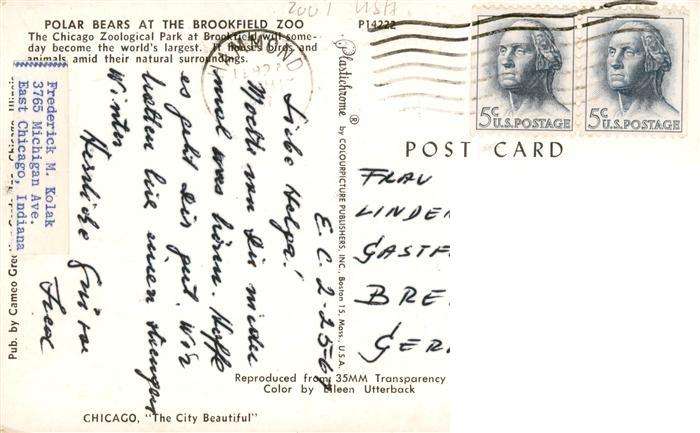 2001 USA
POLAR BEARS AT THE BROOKFIELD ZOO
The Chicago Zoological Park at Brookfield will some-
day become the world's largest. It houses birds and
animals amid their natural surroundings.
P14222
5c U.S.POSTAGE
5c U.S.POSTAGE
POST CARD
Plastichrome ® by COLOURPICTURE PUBLISHERS, INC., Boston 15, Mass., U.S.A.
E. C. 2-25-64
Liebe Helga!
Möchte von Dir wieder
mal was hören. Hoffe
es geht Dir gut. Wir
hatten hier einen strengen
Winter
Herzliche Grüsse
Fred
FRAU
LINDE
GASTF
BRE
GER
Frederick M. Kolak
3765 Michigan Ave.
East Chicago, Indiana
Pub. by Cameo Gre
Reproduced from 35MM Transparency
Color by Eileen Utterback
CHICAGO, "The City Beautiful"